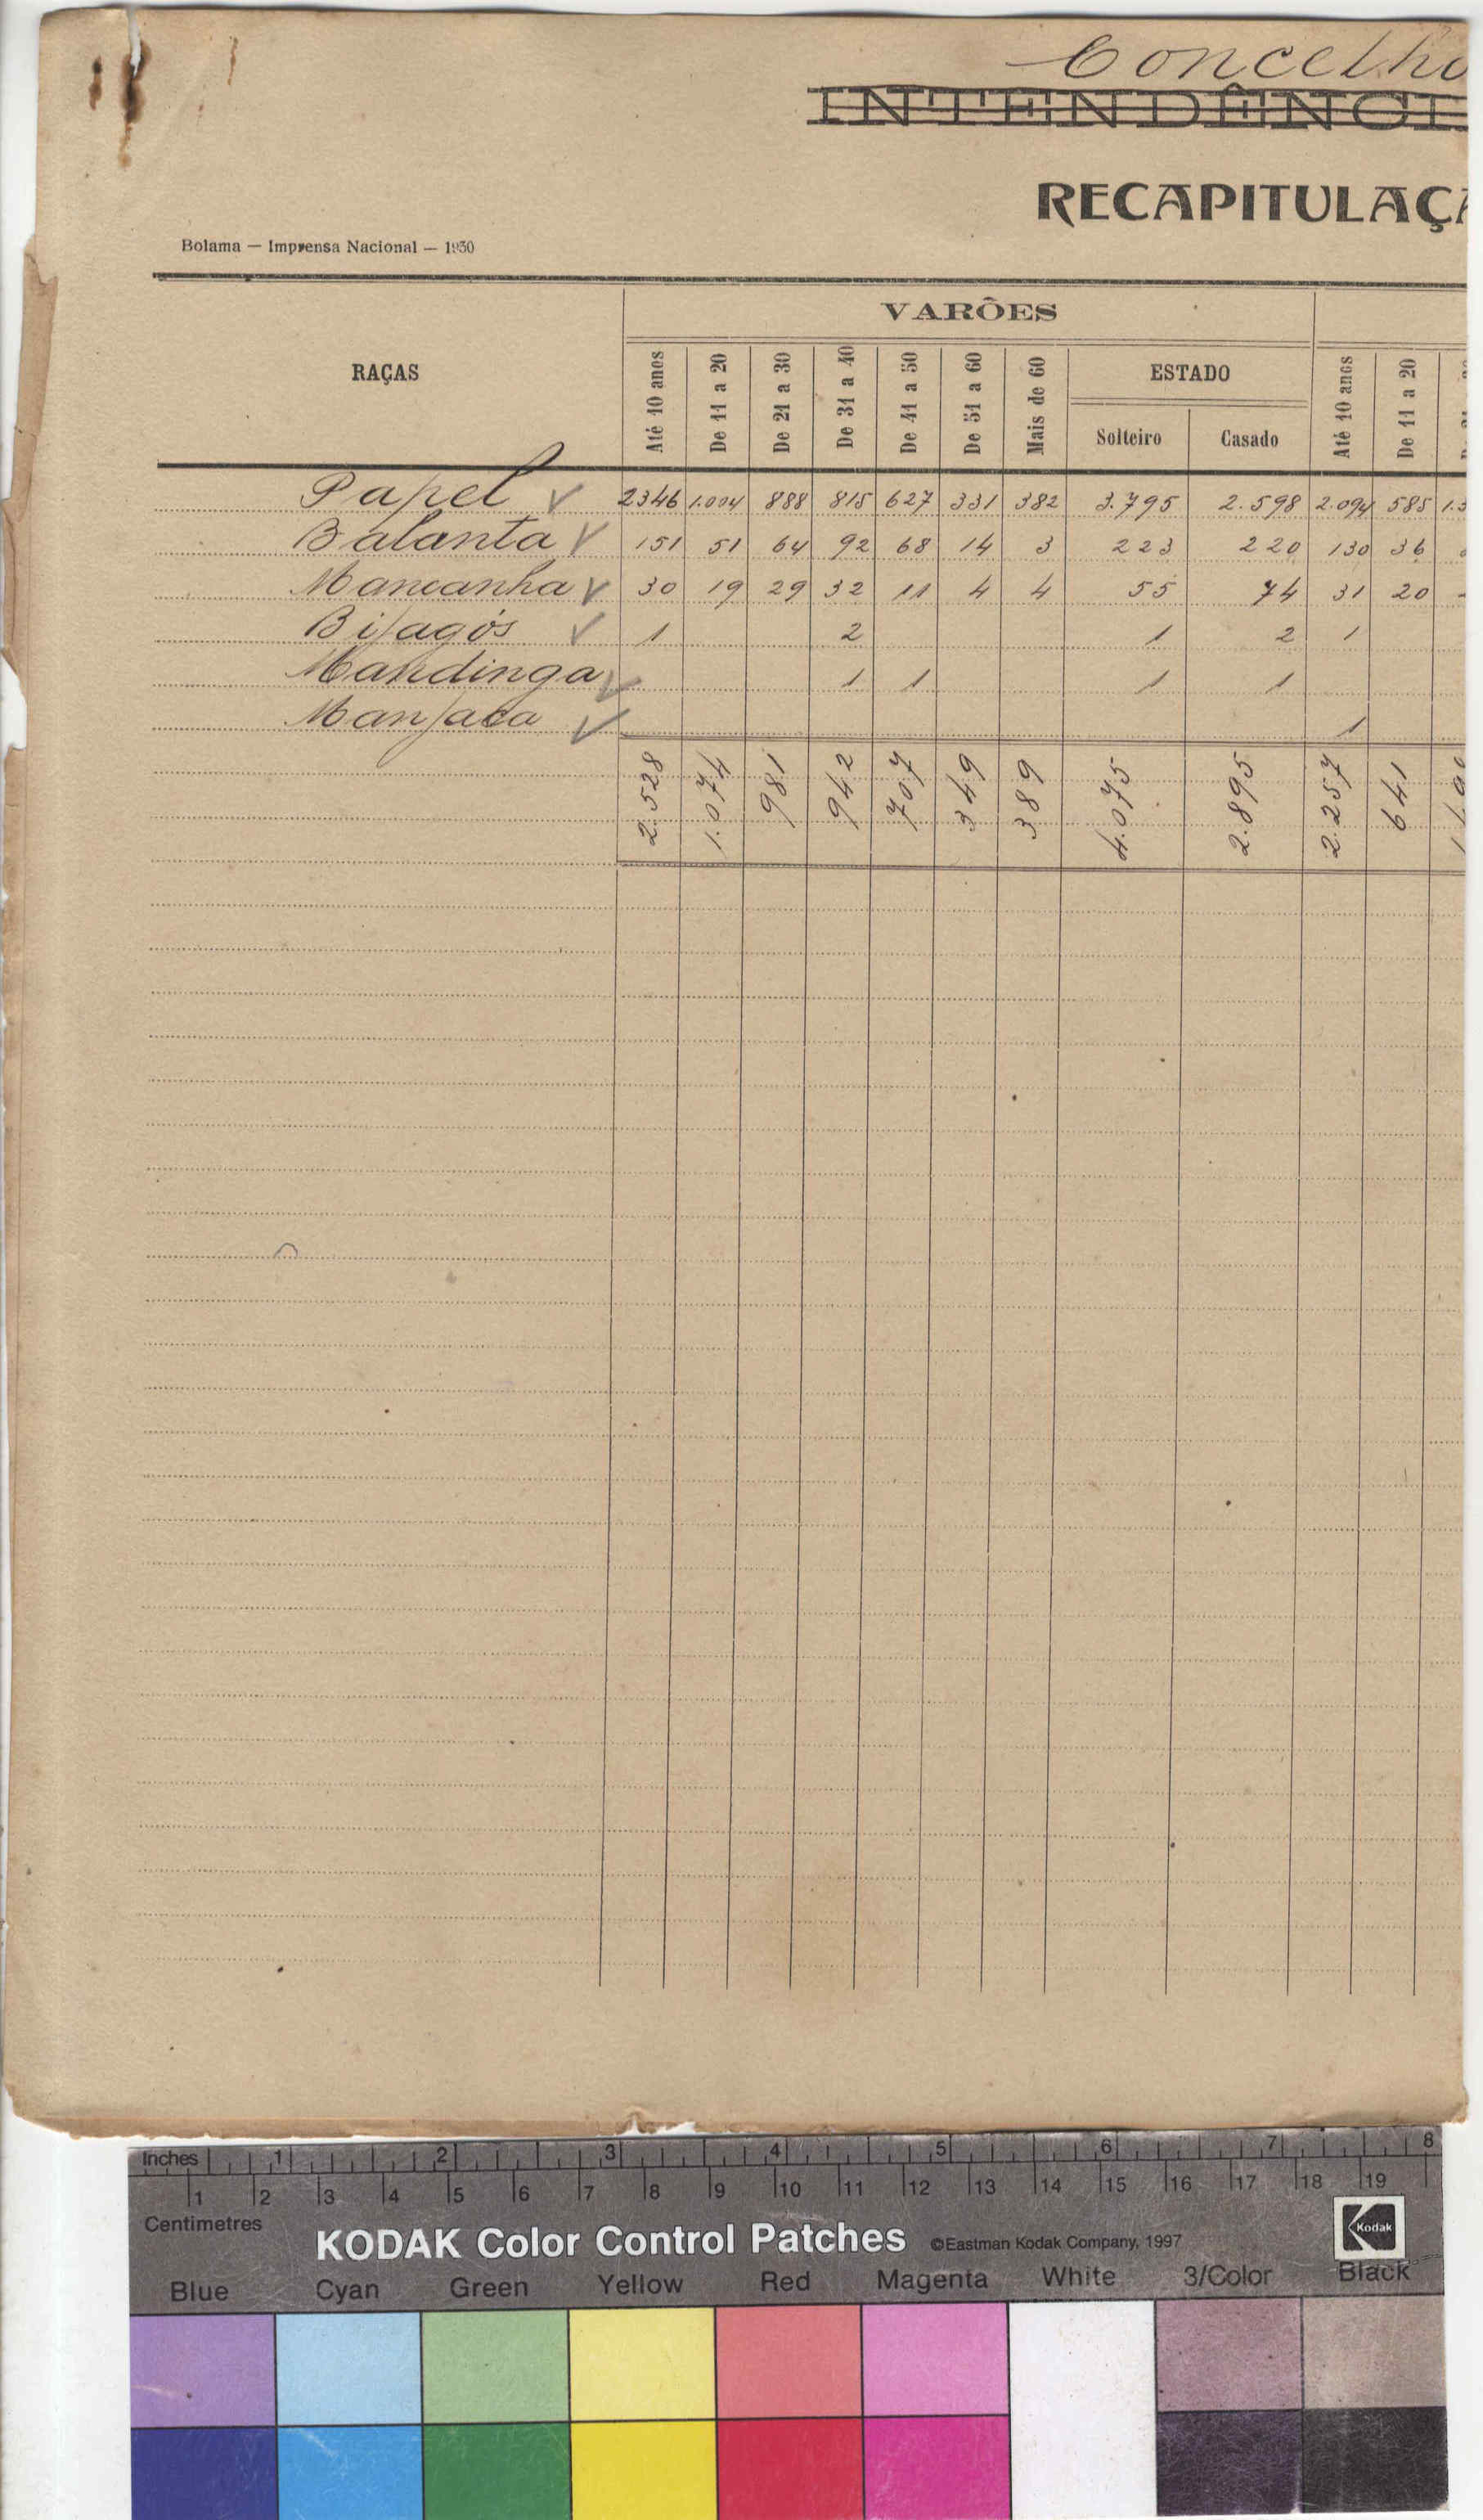 Concelho
INTENDÊNCI
RECAPITULAÇÃ
Bolama — Imprensa Nacional — 1930
RAÇAS
VARÕES
Até 10 anos De 11 a 20 De 21 a 30 De 31 a 40 De 41 a 50 De 51 a 60 Mais de 60 ESTADO Até 10 anos De 11 a 20
Solteiro Casado
Papel 2346 1.004 888 815 627 331 382 3.795 2.598 2.094 585
Balanta 151 51 64 92 68 14 3 223 220 130 36
Mancanha 30 19 29 32 11 4 4 55 74 31 20
Bijagós 1 2 1 2 1
Mandinga 1 1 1 1
Manjaca 1
2.528 1.074 981 942 707 349 389 4.075 2.895 2.257 641
Inches 1 2 3 4 5 6 7 8
1 2 3 4 5 6 7 8 9 10 11 12 13 14 15 16 17 18 19
Centimetres
KODAK Color Control Patches ©Eastman Kodak Company, 1997 Kodak
Blue Cyan Green Yellow Red Magenta White 3/Color Black